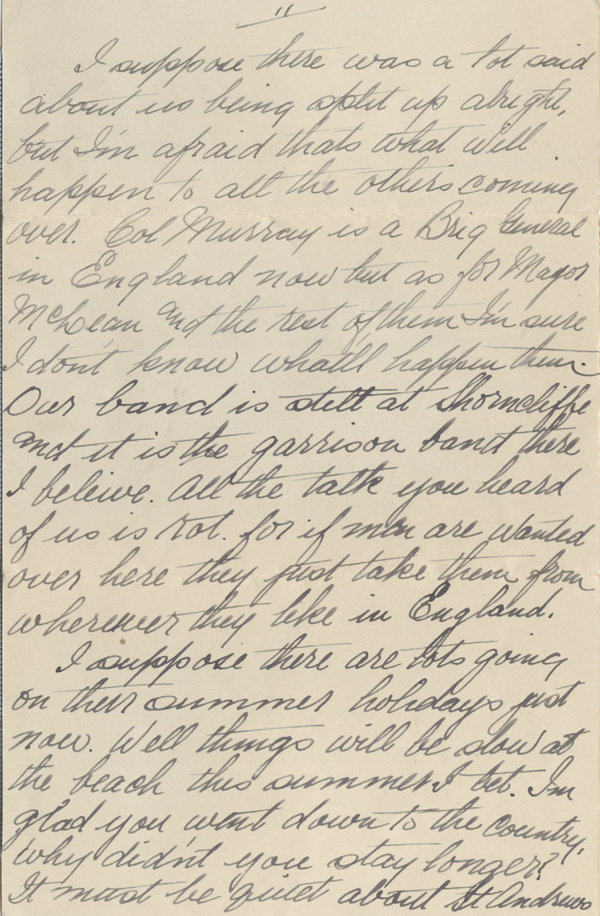 11
I suppose there was a lot said
about us being split up alright,
but I'm afraid thats what will
happen to all the others coming
over. Col Murray is a Brig General
in England now but as for Major
McLean and the rest of them I'm sure
I don't know what'll happen them.
Our band is still at Shorncliffe
and it is the garrison band there
I beleive. All the talk you heard
of us is rot. for if men are wanted
over here they just take them from
wherever they like in England.
I suppose there are lots going
on their summer holidays just
now. Well things will be slow at
the beach this summer I bet. I'm
glad you went down to the country.
Why didn't you stay longer?
It must be quiet about St Andrews